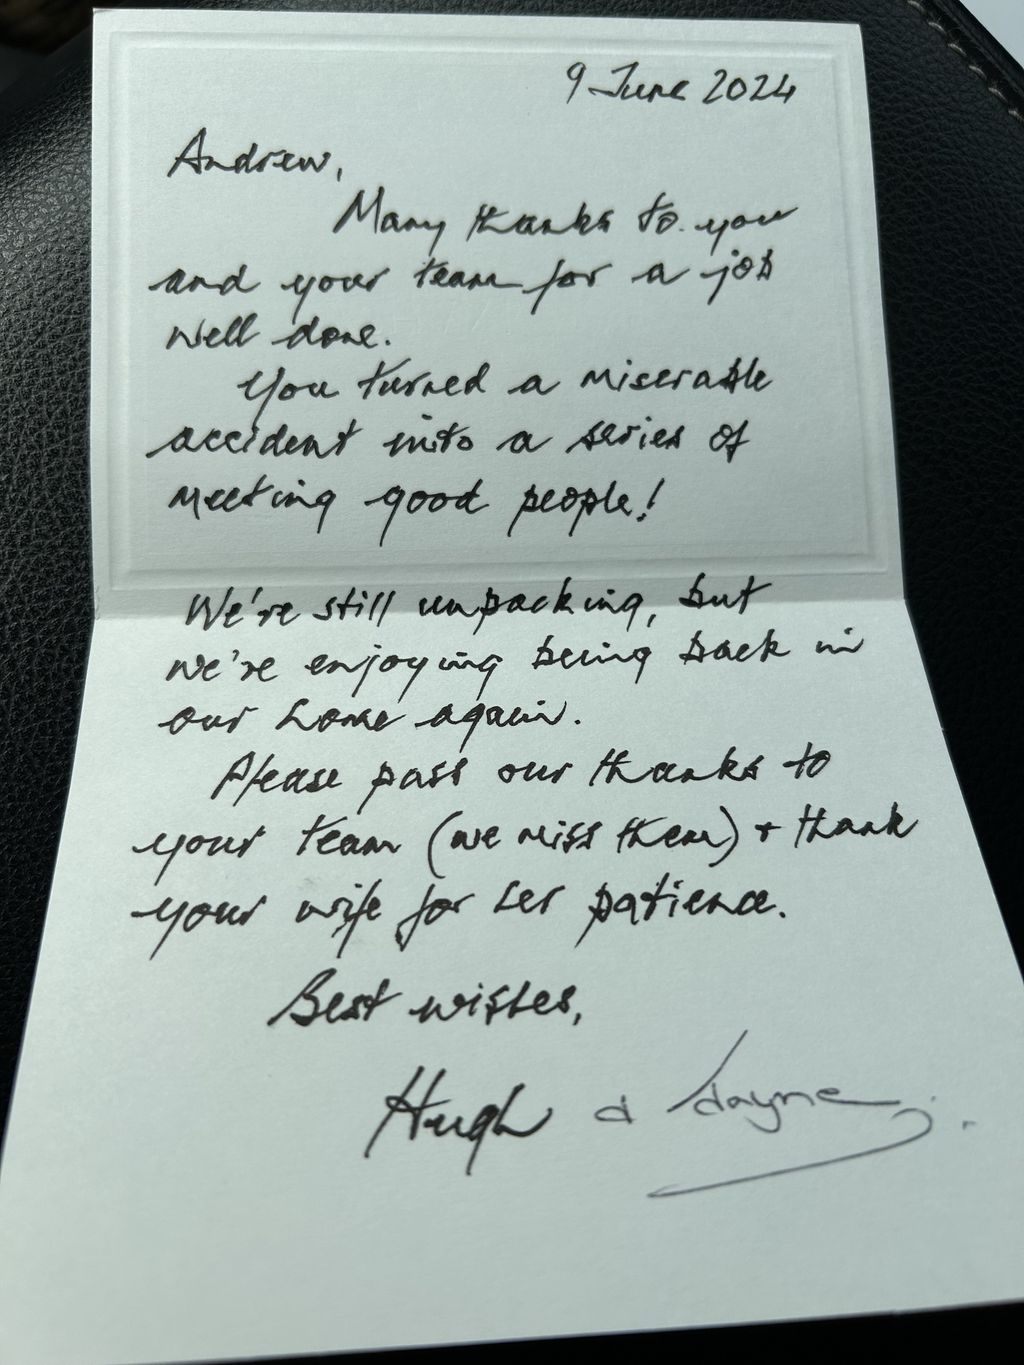 9 June 2024
Andrew,
Many thanks to you
and your team for a job
well done.
You turned a miserable
accident into a series of
meeting good people!
We're still unpacking, but
we're enjoying being back in
our home again.
Please pass our thanks to
your team (we miss them) + thank
your wife for her patience.
Best wishes,
Hugh &